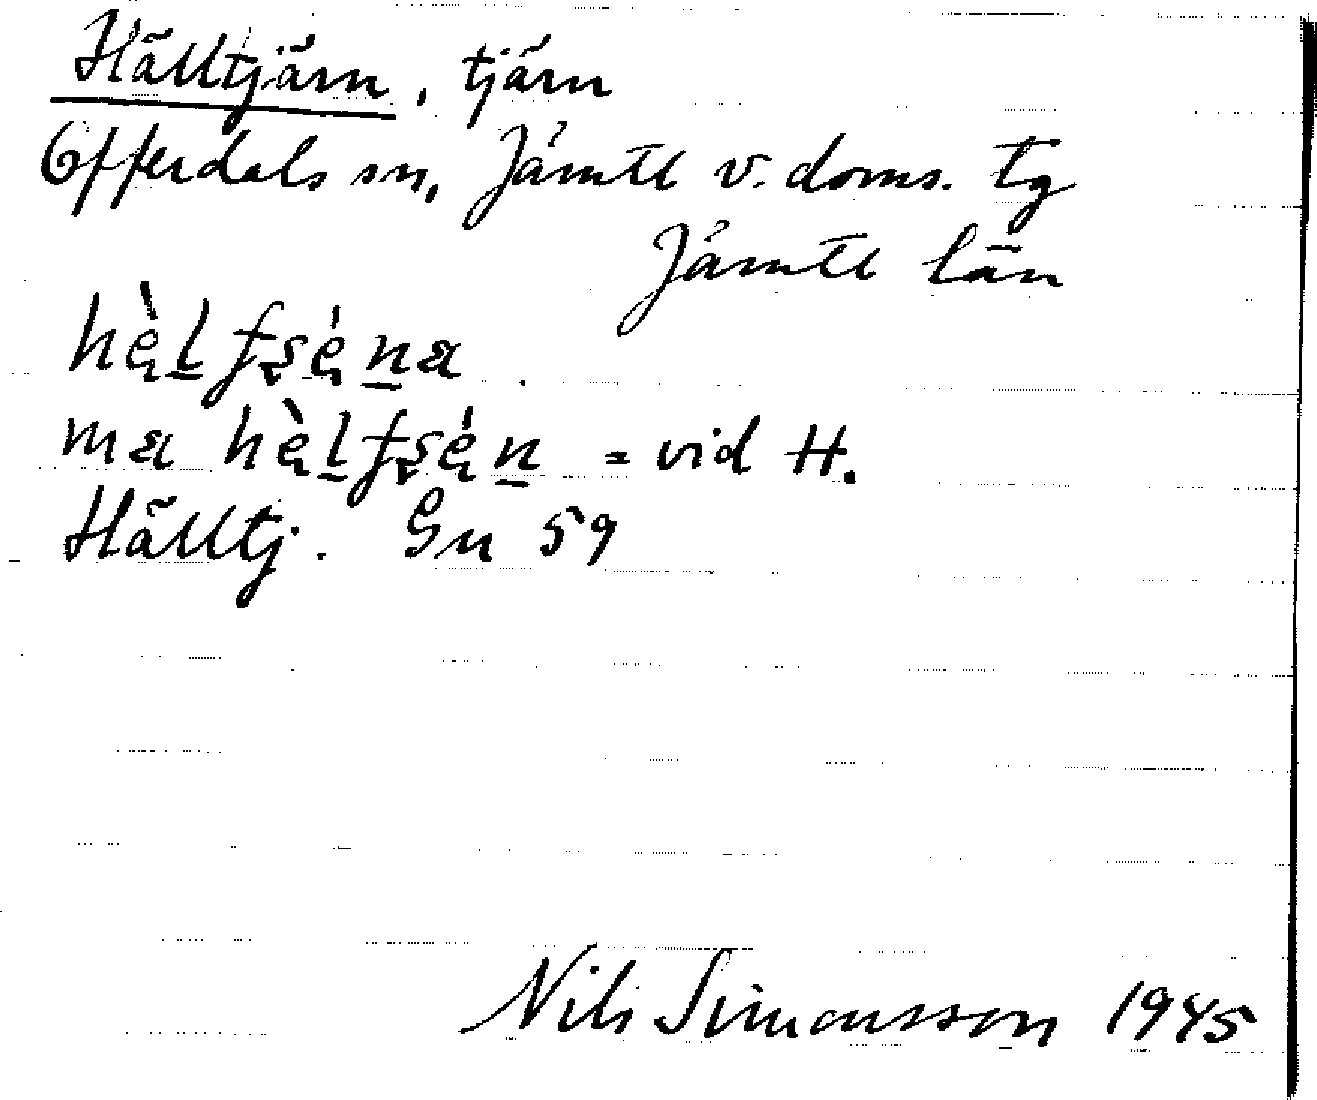 Hälltjärn, tjärn
Offerdals sn, Jämtl v. doms. tg
Jämtl län
hę̀l̠fşę́n̠a
ma hę̀l̠fşę́n̠ = vid H.
Hälltj. Gn 59
Nils Simonsson 1945